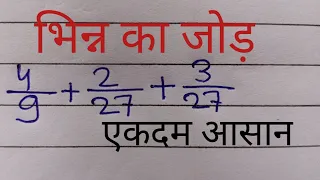 भिन्न का जोड़
4/9 + 2/27 + 3/27
एकदम आसान